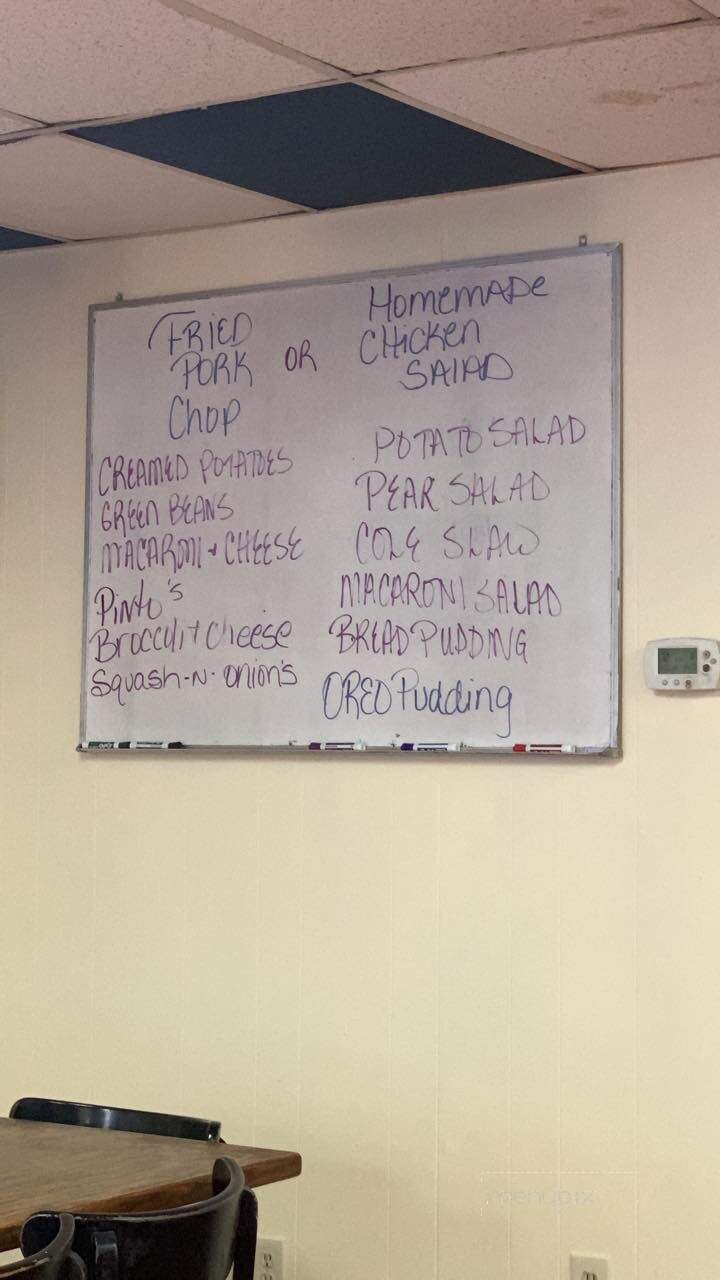 FRIED
PORK
Chop
OR
HOMEMADE
CHICKEN
SALAD
CREAMED POTATOES
GREEN BEANS
MACARONI + CHEESE
Pinto's
Broccoli + Cheese
Squash-N-onion's
POTATO SALAD
PEAR SALAD
COLE SLAW
MACARONI SALAD
BREAD PUDDING
OREO Pudding
menupix